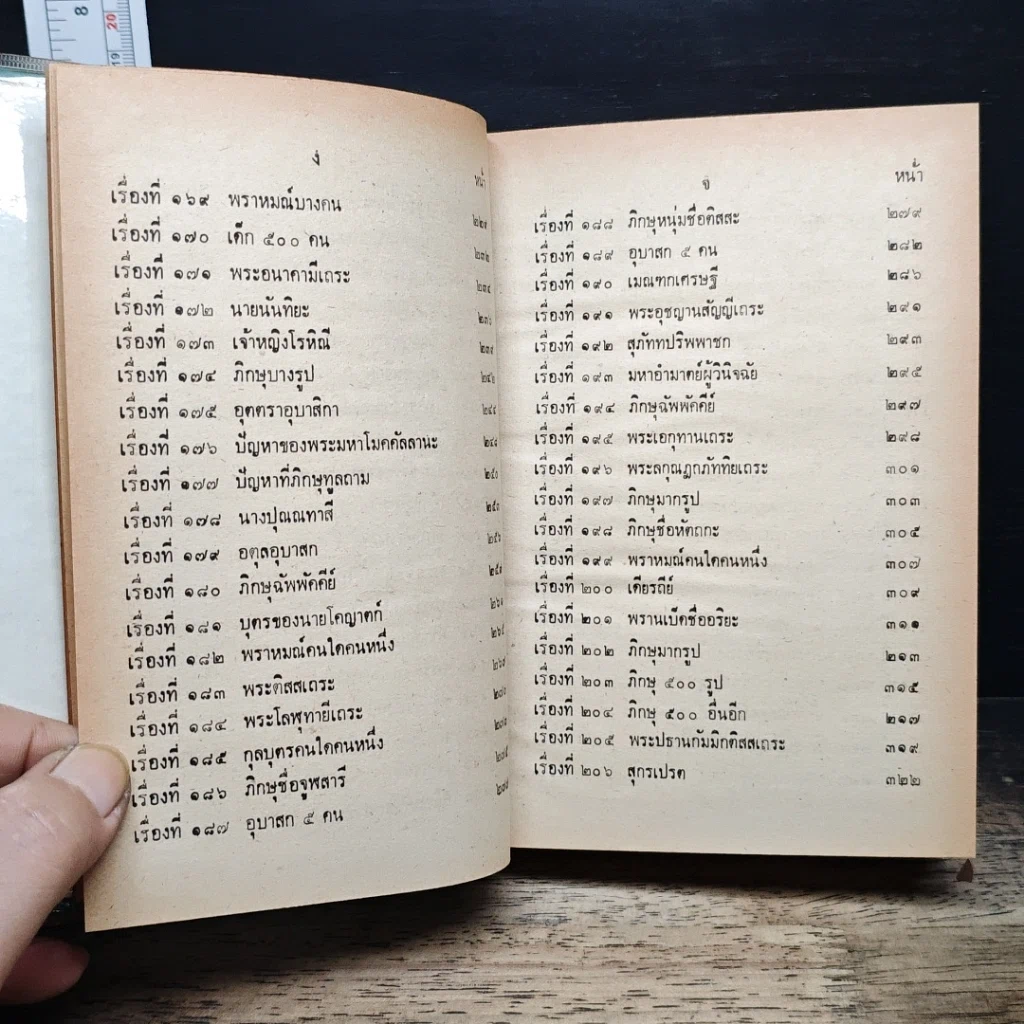 8
20
19
ง
หน้า
เรื่องที่ ๑๖๙ พราหมณ์บางคน
เรื่องที่ ๑๗๐ เด็ก ๕๐๐ คน
เรื่องที่ ๑๗๑ พระอนาคามีเถระ
เรื่องที่ ๑๗๒ นายนันทิยะ
เรื่องที่ ๑๗๓ เจ้าหญิงโรหิณี
เรื่องที่ ๑๗๔ ภิกษุบางรูป
เรื่องที่ ๑๗๕ อุตตราอุบาสิกา
เรื่องที่ ๑๗๖ ปัญหาของพระมหาโมคคัลลานะ
เรื่องที่ ๑๗๗ ปัญหาที่ภิกษุทูลถาม ๒๕๐
เรื่องที่ ๑๗๘ นางปุณณทาสี
เรื่องที่ ๑๗๙ อตุลอุบาสก
เรื่องที่ ๑๘๐ ภิกษุฉัพพัคคีย์
เรื่องที่ ๑๘๑ บุตรของนายโคญาตก์
เรื่องที่ ๑๘๒ พราหมณ์คนใดคนหนึ่ง
เรื่องที่ ๑๘๓ พระติสสเถระ
เรื่องที่ ๑๘๔ พระโลฬุทายีเถระ
เรื่องที่ ๑๘๕ กุลบุตรคนใดคนหนึ่ง
เรื่องที่ ๑๘๖ ภิกษุชื่อจูฬสารี
เรื่องที่ ๑๘๗ อุบาสก ๕ คน
จ
หน้า
เรื่องที่ ๑๘๘ ภิกษุหนุ่มชื่อติสสะ ๒๗๙
เรื่องที่ ๑๘๙ อุบาสก ๕ คน ๒๘๒
เรื่องที่ ๑๙๐ เมณฑกเศรษฐี ๒๘๖
เรื่องที่ ๑๙๑ พระอุชญานสัญญีเถระ ๒๙๑
เรื่องที่ ๑๙๒ สุภัททปริพพาชก ๒๙๓
เรื่องที่ ๑๙๓ มหาอำมาตย์ผู้วินิจฉัย ๒๙๕
เรื่องที่ ๑๙๔ ภิกษุฉัพพัคคีย์ ๒๙๗
เรื่องที่ ๑๙๕ พระเอกุทานเถระ ๒๙๘
เรื่องที่ ๑๙๖ พระลกุณฎกภัททิยเถระ ๓๐๑
เรื่องที่ ๑๙๗ ภิกษุมากรูป ๓๐๓
เรื่องที่ ๑๙๘ ภิกษุชื่อหัตถกะ ๓๐๕
เรื่องที่ ๑๙๙ พราหมณ์คนใดคนหนึ่ง ๓๐๗
เรื่องที่ ๒๐๐ เดียรถีย์ ๓๐๙
เรื่องที่ ๒๐๑ พรานเบ็ดชื่ออริยะ ๓๑๑
เรื่องที่ ๒๐๒ ภิกษุมากรูป ๒๑๓
เรื่องที่ ๒๐๓ ภิกษุ ๕๐๐ รูป ๓๑๕
เรื่องที่ ๒๐๔ ภิกษุ ๕๐๐ อื่นอีก ๒๑๗
เรื่องที่ ๒๐๕ พระปธานกัมมิกติสสเถระ ๓๑๙
เรื่องที่ ๒๐๖ สุกรเปรต ๓๒๒